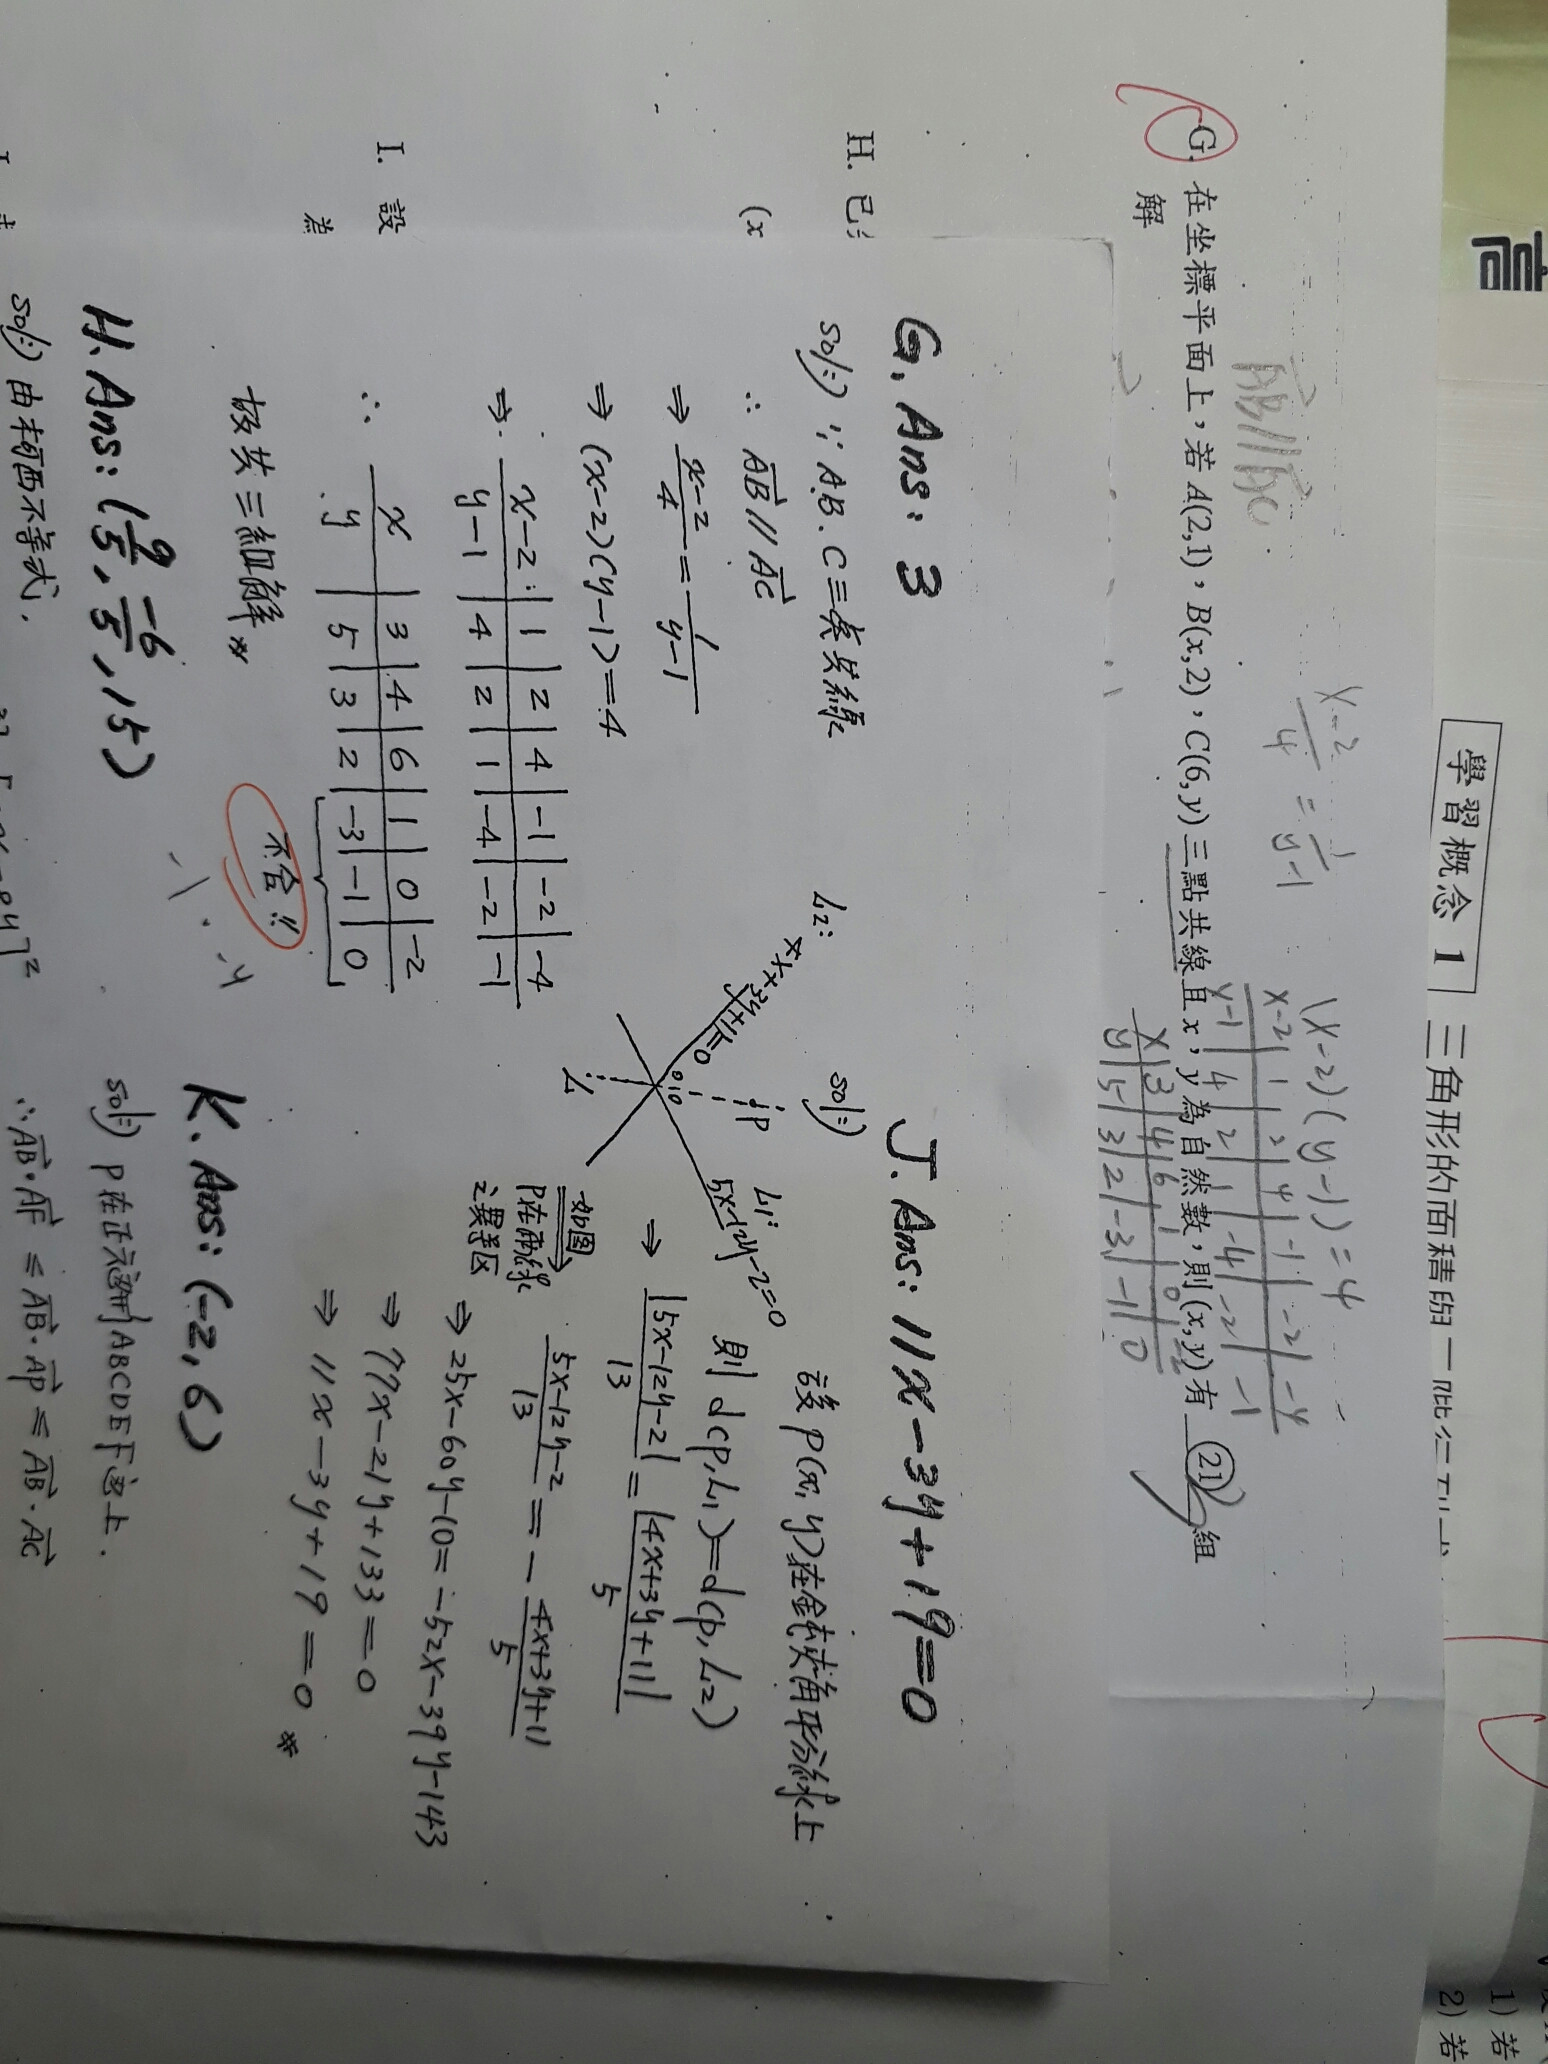 言
學習概念 1
三角形的面積與一
1) 若
2) 若
AB//AC
x-2/4 = 1/y-1
(x-2)(y-1)=4
x-2 | 1 | 2 | 4 | -1 | -2 | -4
y-1 | 4 | 2 | 1 | -4 | -2 | -1
x | 3 | 4 | 6 | 1 | 0 | -2
y | 5 | 3 | 2 | -3 | -1 | 0
G. 在坐標平面上,若 A(2,1),B(x,2),C(6,y) 三點共線且 x,y 為自然數,則 (x,y) 有 (21) 組
解
H. 已
(x
I. 設
為
G. Ans: 3
sol:) ∵ A.B.C三點共線
∴ AB // AC
⇒ x-2/4 = 1/y-1
⇒ (x-2)(y-1)=4
⇒ x-2 | 1 | 2 | 4 | -1 | -2 | -4
y-1 | 4 | 2 | 1 | -4 | -2 | -1
∴ x | 3 | 4 | 6 | 1 | 0 | -2
y | 5 | 3 | 2 | -3 | -1 | 0
不合!!
故共三組解
-1. -4
H. Ans: (9/5, -6/5, 15)
sol:) 由柯西不等式,
J. Ans: 11x-3y+19=0
sol:)
L2:
4x+3y+11=0
P
L1:
5x-12y-2=0
L
設P(x,y)在鈍角平分線上
則 d(P,L1)=d(P,L2)
⇒ |5x-12y-2|/13 = |4x+3y+11|/5
如圖
P在兩線
之異等区
5x-12y-2/13 = - 4x+3y+11/5
⇒ 25x-60y-10=-52x-39y-143
⇒ 77x-21y+133=0
⇒ 11x-3y+19=0
K. Ans: (-2, 6)
sol:) P在正六邊形ABCDEF邊上.
∴ AB·AF ≤ AB·AP ≤ AB·AC